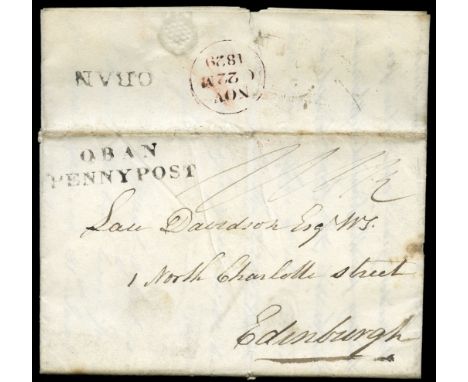 OBAN
NOV
C 22 M
1829
OBAN
PENNY POST
Davidson Esqr W.S.
1 North Charlotte street
Edinburgh